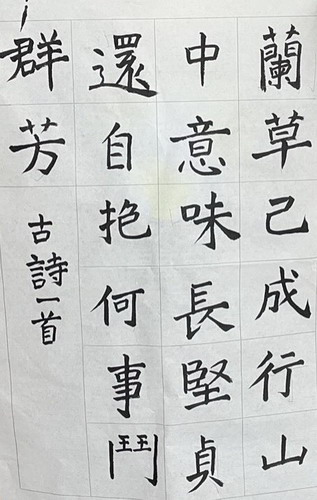 蘭草己成行山
中意味長堅貞
還自抱何事鬥
群芳
古詩一首